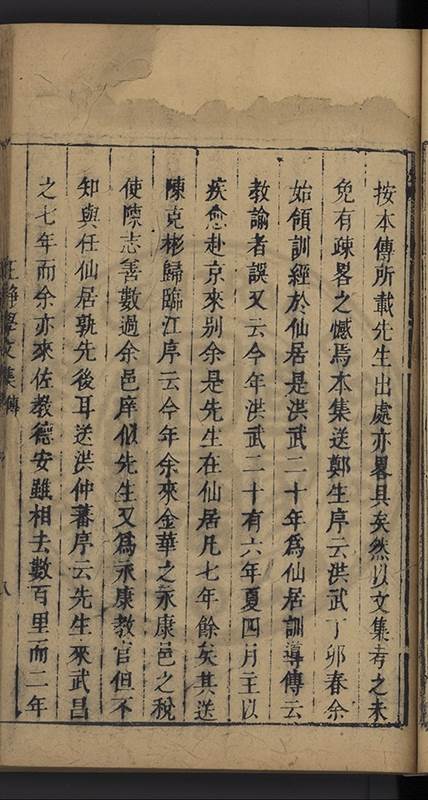 按本傳所載先生出處亦畧具矣然以文集考之未
免有疎畧之憾焉本集送鄭生序云洪武丁卯春余
始領訓經於仙居是洪武二十年爲仙居訓導傳云
教諭者誤又云今年洪武二十有六年夏四月主以
疾愈赴京來别余是先生在仙居凡七年餘矣其送
陳克彬歸臨江序云今年余來金華之永康邑之稅
使陳志善數過余邑庠似先生又爲永康教官但不
知與任仙居孰先後耳送洪仲蕃序云先生來武昌
之七年而余亦來佐教德安雖相去數百里而二年
王靜學文集傳
八